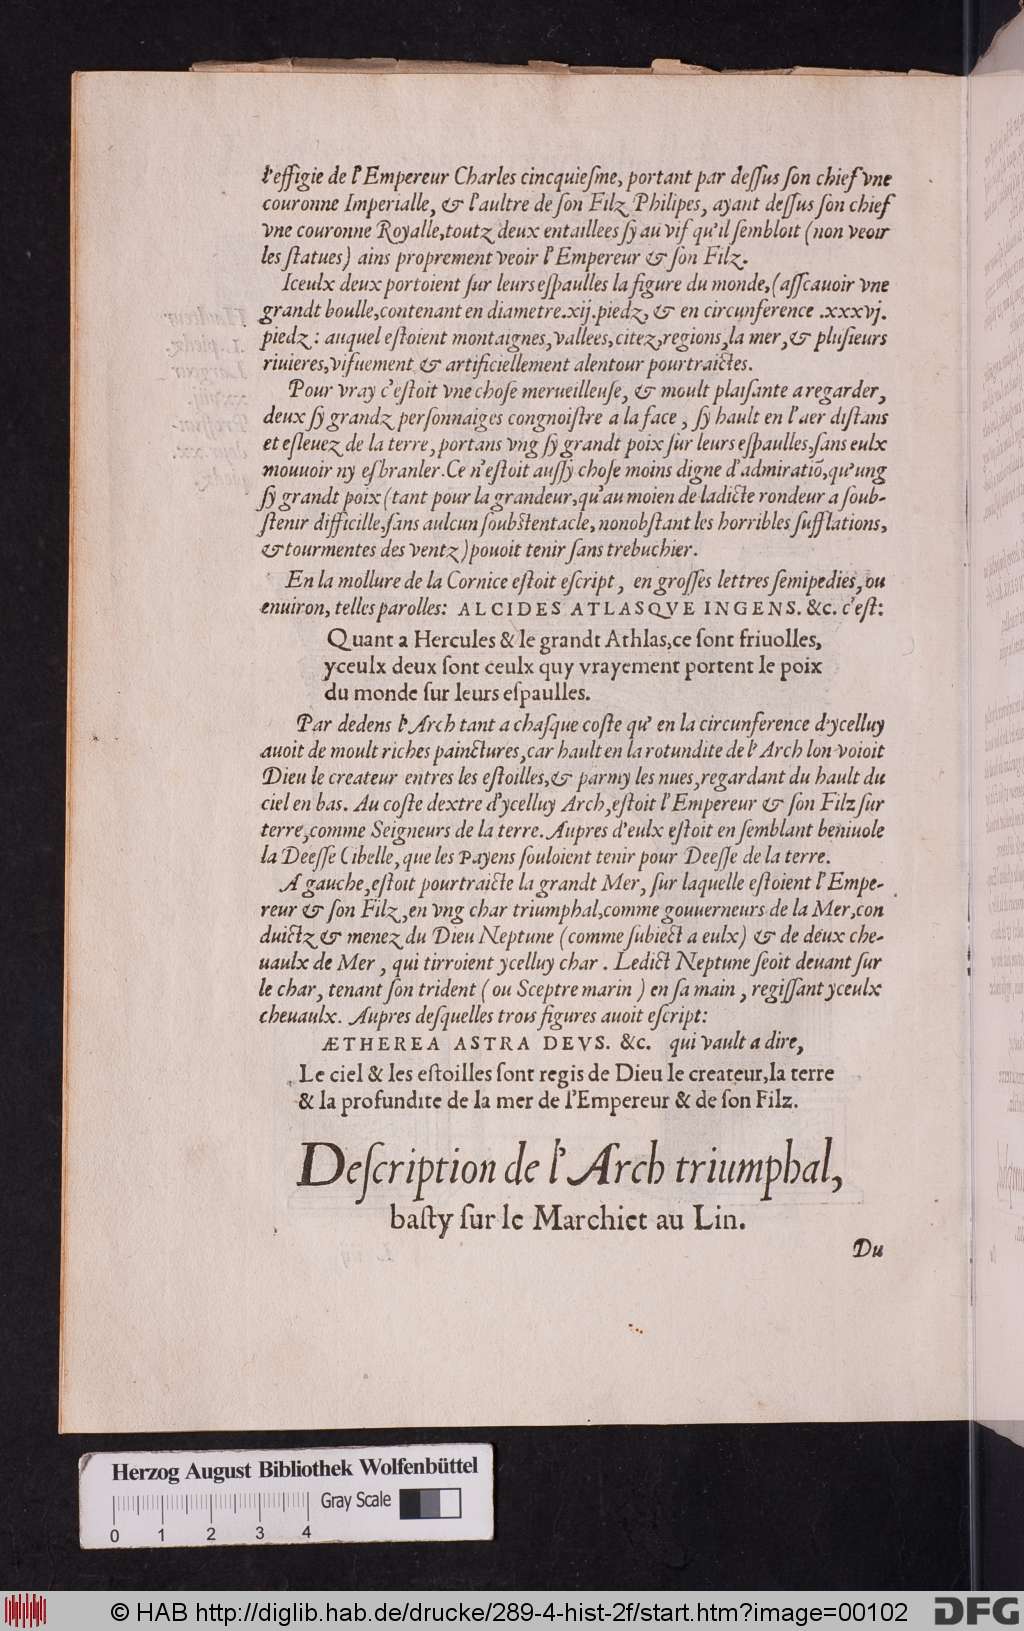 l'effigie de l'Empereur Charles cincquieſme, portant par deſſus ſon chief vne
couronne Imperialle, & l'aultre de ſon Filz Philipes, ayant deſſus ſon chief
vne couronne Royalle,toutz deux entaillees ſy au vif qu'il ſembloit (non veoir
les ſtatues) ains proprement veoir l'Empereur & ſon Filz.
Iceulx deux portoient ſur leurs eſpaulles la figure du monde,(aſſcauoir vne
grandt boulle,contenant en diametre.xij.piedz, & en circunference .xxxvj.
piedz : auquel eſtoient montaignes,vallees,citez,regions,la mer,& pluſieurs
riuieres,vifuement & artificiellement alentour pourtraictes.
Pour vray c'eſtoit vne choſe merueilleuſe, & moult plaiſante a regarder,
deux ſy grandz perſonnaiges congnoiſtre a la face , ſy hault en l'aer diſtans
et eſleuez de la terre, portans vng ſy grandt poix ſur leurs eſpaulles,ſans eulx
mouuoir ny eſbranler.Ce n'eſtoit auſſy choſe moins digne d'admiratiō,qu'ung
ſy grandt poix (tant pour la grandeur,qu'au moien de ladicte rondeur a ſoub-
ſtenir difficille,ſans aulcun ſoubſtentacle, nonobſtant les horribles ſufflations,
& tourmentes des ventz) pouoit tenir ſans trebuchier.
En la mollure de la Cornice eſtoit eſcript , en groſſes lettres ſemipedies, ou
enuiron, telles parolles: ALCIDES ATLASQVE INGENS. &c. c'eſt:
Quant a Hercules & le grandt Athlas,ce ſont friuolles,
yceulx deux ſont ceulx quy vrayement portent le poix
du monde ſur leurs eſpaulles.
Par dedens l'Arch tant a chaſque coſte qu' en la circunference d'ycelluy
auoit de moult riches painctures,car hault en la rotundite de l'Arch lon voioit
Dieu le createur entres les eſtoilles,& parmy les nues,regardant du hault du
ciel en bas. Au coſte dextre d'ycelluy Arch,eſtoit l'Empereur & ſon Filz ſur
terre,comme Seigneurs de la terre. Aupres d'eulx eſtoit en ſemblant beniuole
la Deeſſe Cibelle, que les Payens ſouloient tenir pour Deeſſe de la terre.
A gauche,eſtoit pourtraicte la grandt Mer, ſur laquelle eſtoient l'Empe-
reur & ſon Filz,en vng char triumphal,comme gouuerneurs de la Mer,con
duictz & menez du Dieu Neptune (comme ſubiect a eulx) & de deux che-
uaulx de Mer , qui tirroient ycelluy char . Ledict Neptune ſeoit deuant ſur
le char, tenant ſon trident ( ou Sceptre marin ) en ſa main , regiſſant yceulx
cheuaulx. Aupres deſquelles trois figures auoit eſcript:
ÆTHEREA ASTRA DEVS. &c. qui vault a dire,
Le ciel & les eſtoilles ſont regis de Dieu le createur,la terre
& la profundite de la mer de l'Empereur & de ſon Filz.
Deſcription de l'Arch triumphal,
baſty ſur le Marchiet au Lin.
Du
Herzog August Bibliothek Wolfenbüttel
Gray Scale
0 1 2 3 4
© HAB http://diglib.hab.de/drucke/289-4-hist-2f/start.htm?image=00102
DFG